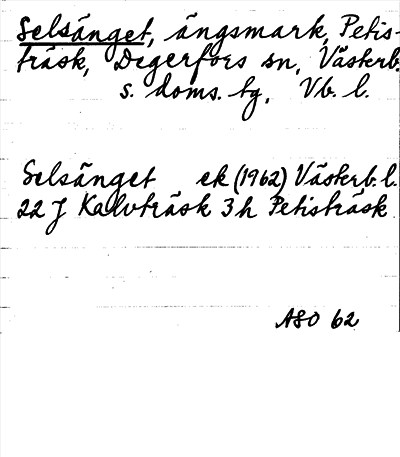 Selsänget, ängsmark, Petis-
träsk, Degerfors sn, Västerb.
s. doms. tg, Vb. l.
Selsänget ek (1962) Västerb. l.
22 J Kalvträsk 3 h Petisträsk
ASO 62